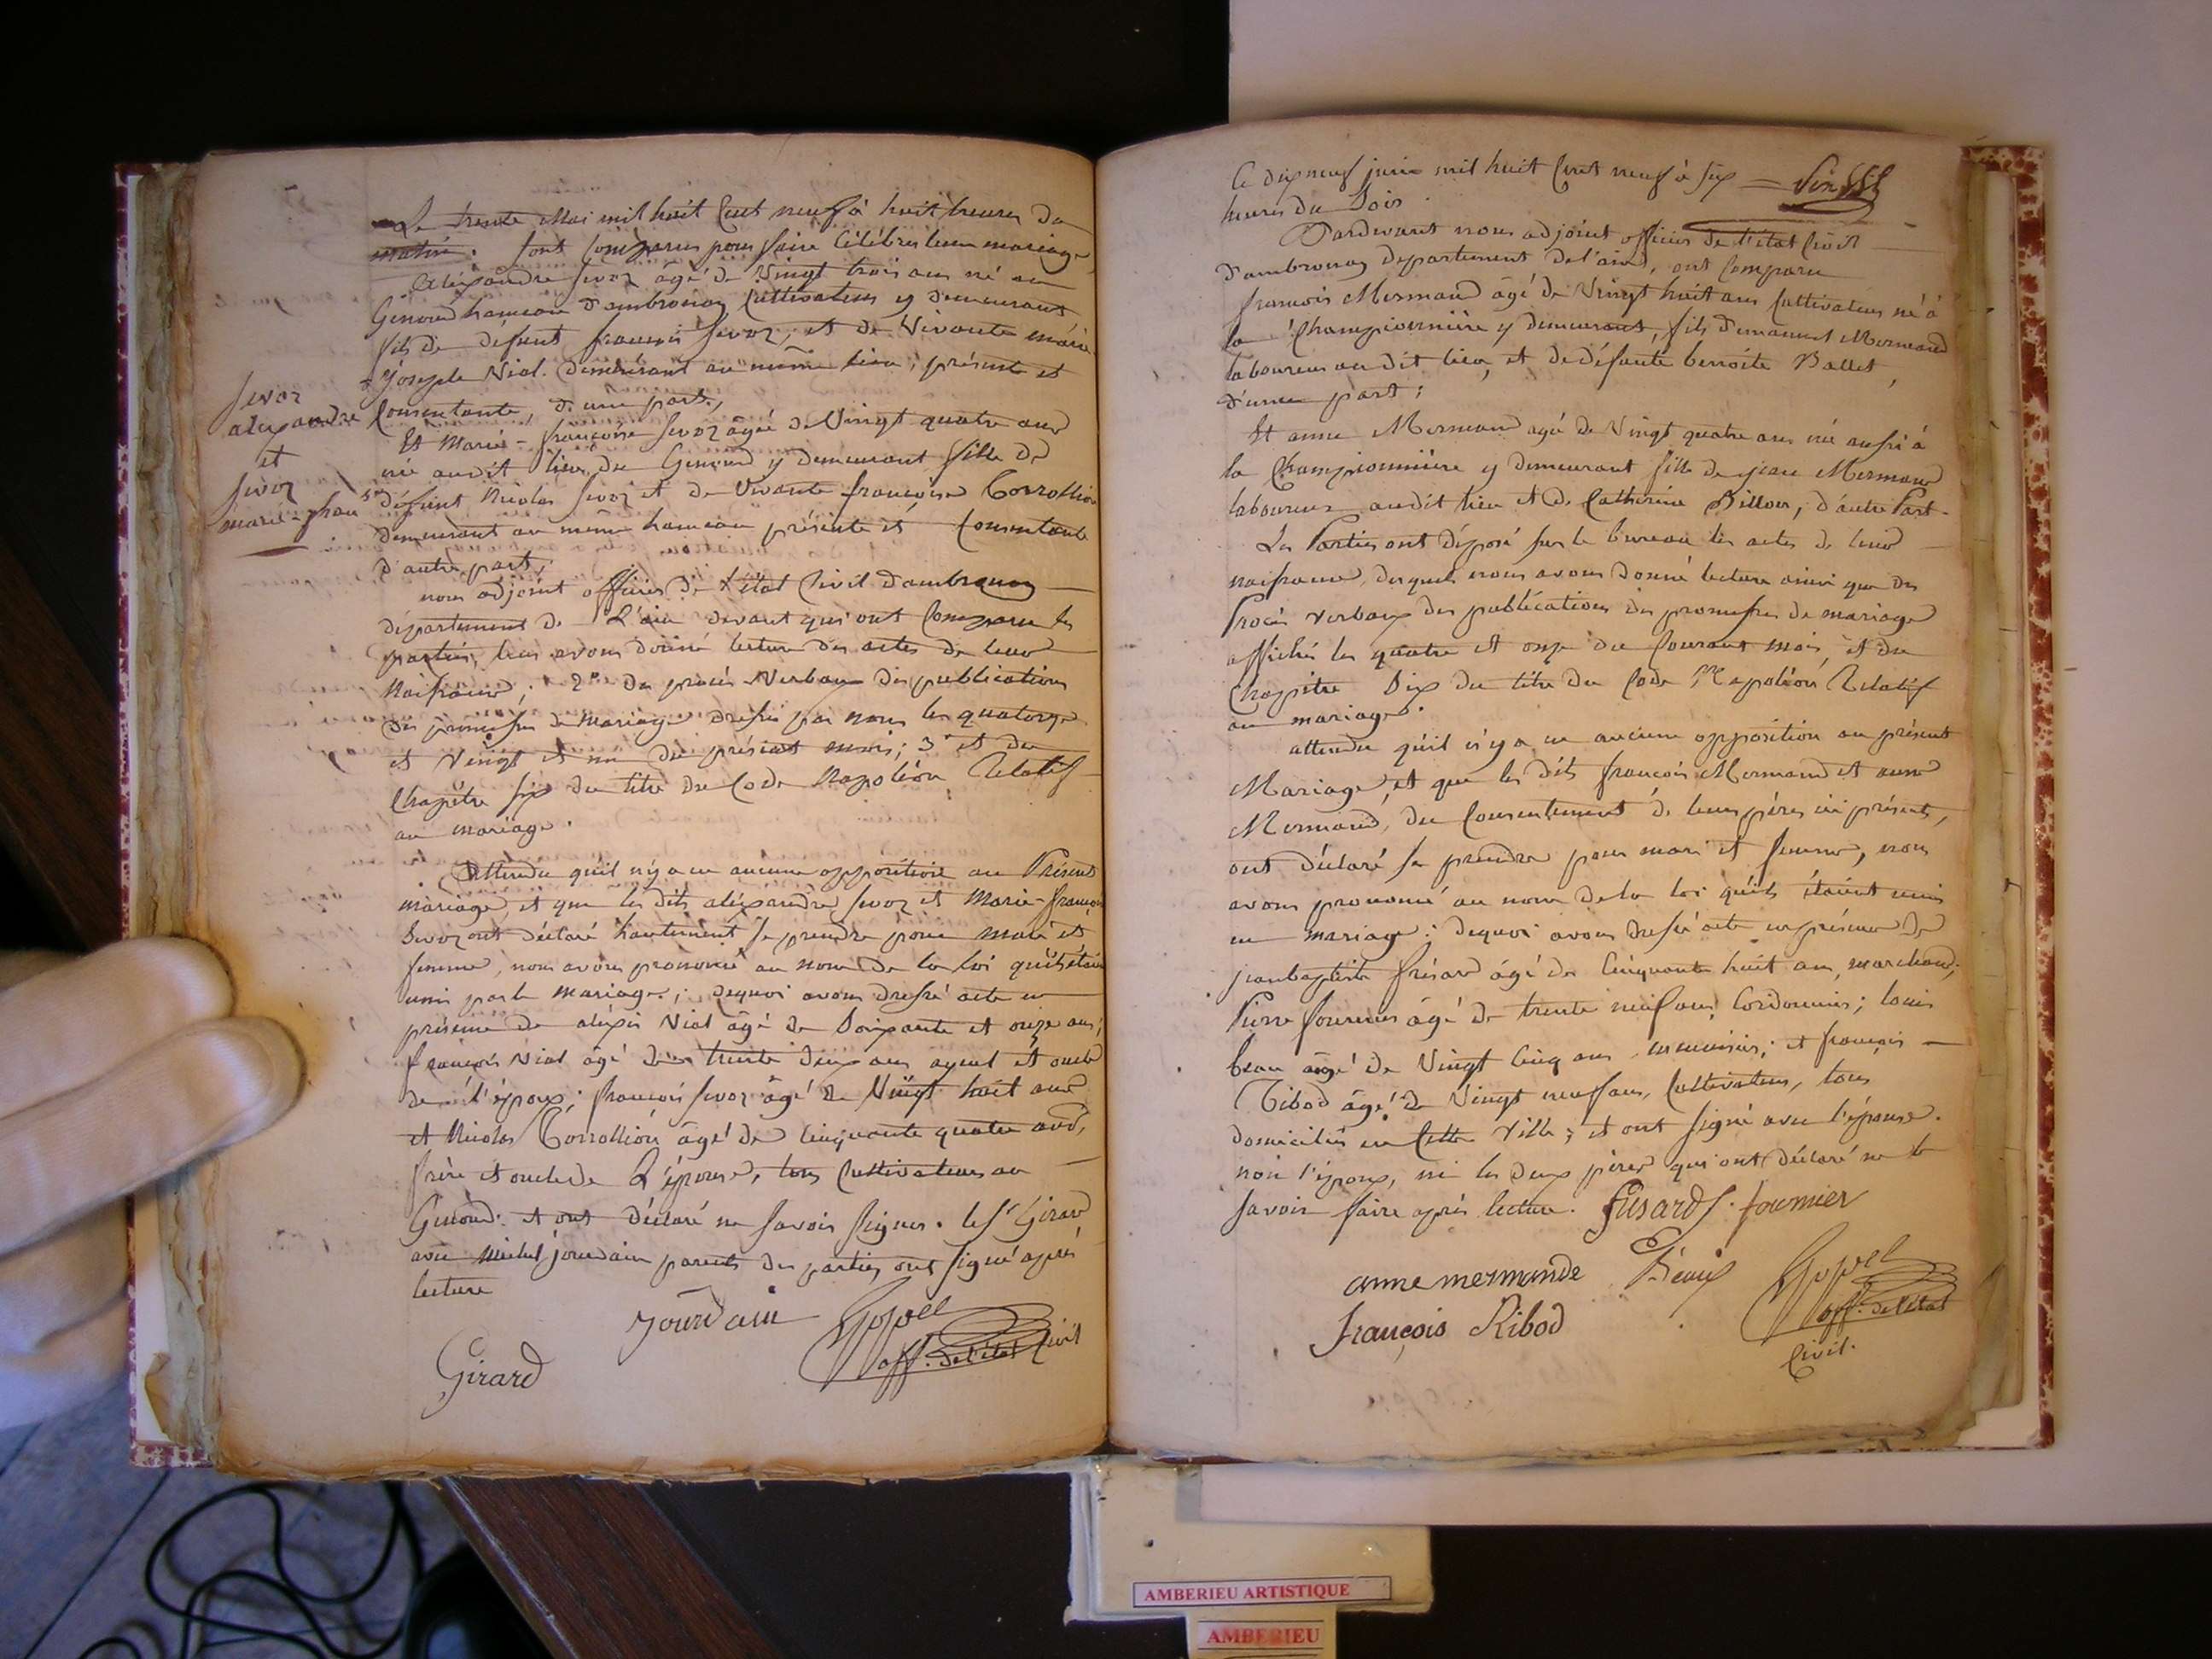 Le trente Mai mil huit Cent neuf à huit heures du
matin. sont comparus pour faire Célébrer leur mariage
alexandre sevoz âgé de Vingt trois ans né au
Genoud hameau d'ambronay Cultivateur y demeurant
fils de defunt françois sevoz, et de Vivante marie
joseple Nial. demeurant au même lieu, présente et
Consentante, d'une part,
sevoz
alexandre
et
sevoz
marie-fran se
Et Marie-françoise sevoz âgée de Vingt quatre ans
née audit lieu du Genoud y demeurant fille de
défunt Nicolas sevoz et de Vivante françoise Corrollion
demeurant au même hameau présente et Consentante
d'autre part;
nous adjoint officier de l'état Civil d'ambronay
département de L'ain devant qui ont Comparu les
parties, leur avons donné lecture des actes de leur
Naissance; 2° du procès-verbaux des publications
des promesses de mariage dressés par nous les quatorze
et Vingt et un du présent mois; 3° et du
Chapitre six du titre du Code Napoléon Relatif
au mariage.
Attendu qu'il n'y a eu aucune opposition au Présent
mariage, et que les dits alexandre sevoz et Marie-françoise
sevoz ont déclaré hautement se prendre pour mari et
femme, nous avons prononcé au nom de la loi qu'ils étaient
unis par le mariage; dequoi avons dressé acte en
présence de alexis Nial âgé de Soixante et onze ans;
françois Nial âgé de trente deux ans ayeul et oncle
de l'époux; françois sevoz âgé de Vingt huit ans
et Nicolas Corrollion âgé de cinquante quatre ans,
frère et oncle de L'épouse, tous Cultivateurs au
Genoud. et ont déclaré ne savoir signer. le sr Girard
avec michel jourdain parents des parties ont signé après
lecture
jourdain
Girard
off. de l'état Civil
Ce dix neuf juin mil huit Cent neuf à six
heures du Soir.
Pardevant nous adjoint officier de l'état Civil
d'ambronay departement de l'ain, ont Comparu
françois Mermand âgé de Vingt huit ans Cultivateur né à
la Championnière y demeurant, fils d'emanuel Mermand
laboureur au dit lieu, et de défunte benoite Ballet,
d'une part;
Et anne Mermand agé de Vingt quatre ans née aussi à
la Championnière y demeurant fille de jean Mermand
laboureur audit lieu et de Catherine Billon, d'autre Part.
Les Parties ont déposé sur le bureau les actes de leur
naissance, desquels nous avons donné lecture ainsi que des
Procès verbaux des publications des promesses de mariage
affichés les quatre et onze du Courant mois, et du
Chapitre Six du titre du Code Napoléon Relatif
au mariage.
attendu qu'il n'y a eu aucune opposition au présent
Mariage, et que les dits françois Mermand et anne
Mermand, du Consentement de leurs pères ici présents,
ont déclaré se prendre pour mari et femme, nous
avons prononcé au nom de la loi qu'ils étaient unis
en mariage; dequoi avons dressé acte en présence de
jeanbaptiste frésard âgé de Cinquante huit ans, marchand;
Pierre fournier âgé de trente neuf ans, Cordonnier; louis
beau âgé de Vingt cinq ans, menuisier; et françois
Ribod âgé de Vingt neuf ans, Cultivateur, tous
domiciliés en Cette Ville; et ont signé avec l'épouse.
non l'époux, ni les deux pères qui ont déclaré ne le
savoir faire après lecture. fusard f. fournier
anne mermande Beaux
françois Ribod
off. de l'état
Civil.
AMBERIEU ARTISTIQUE
AMBERIEU